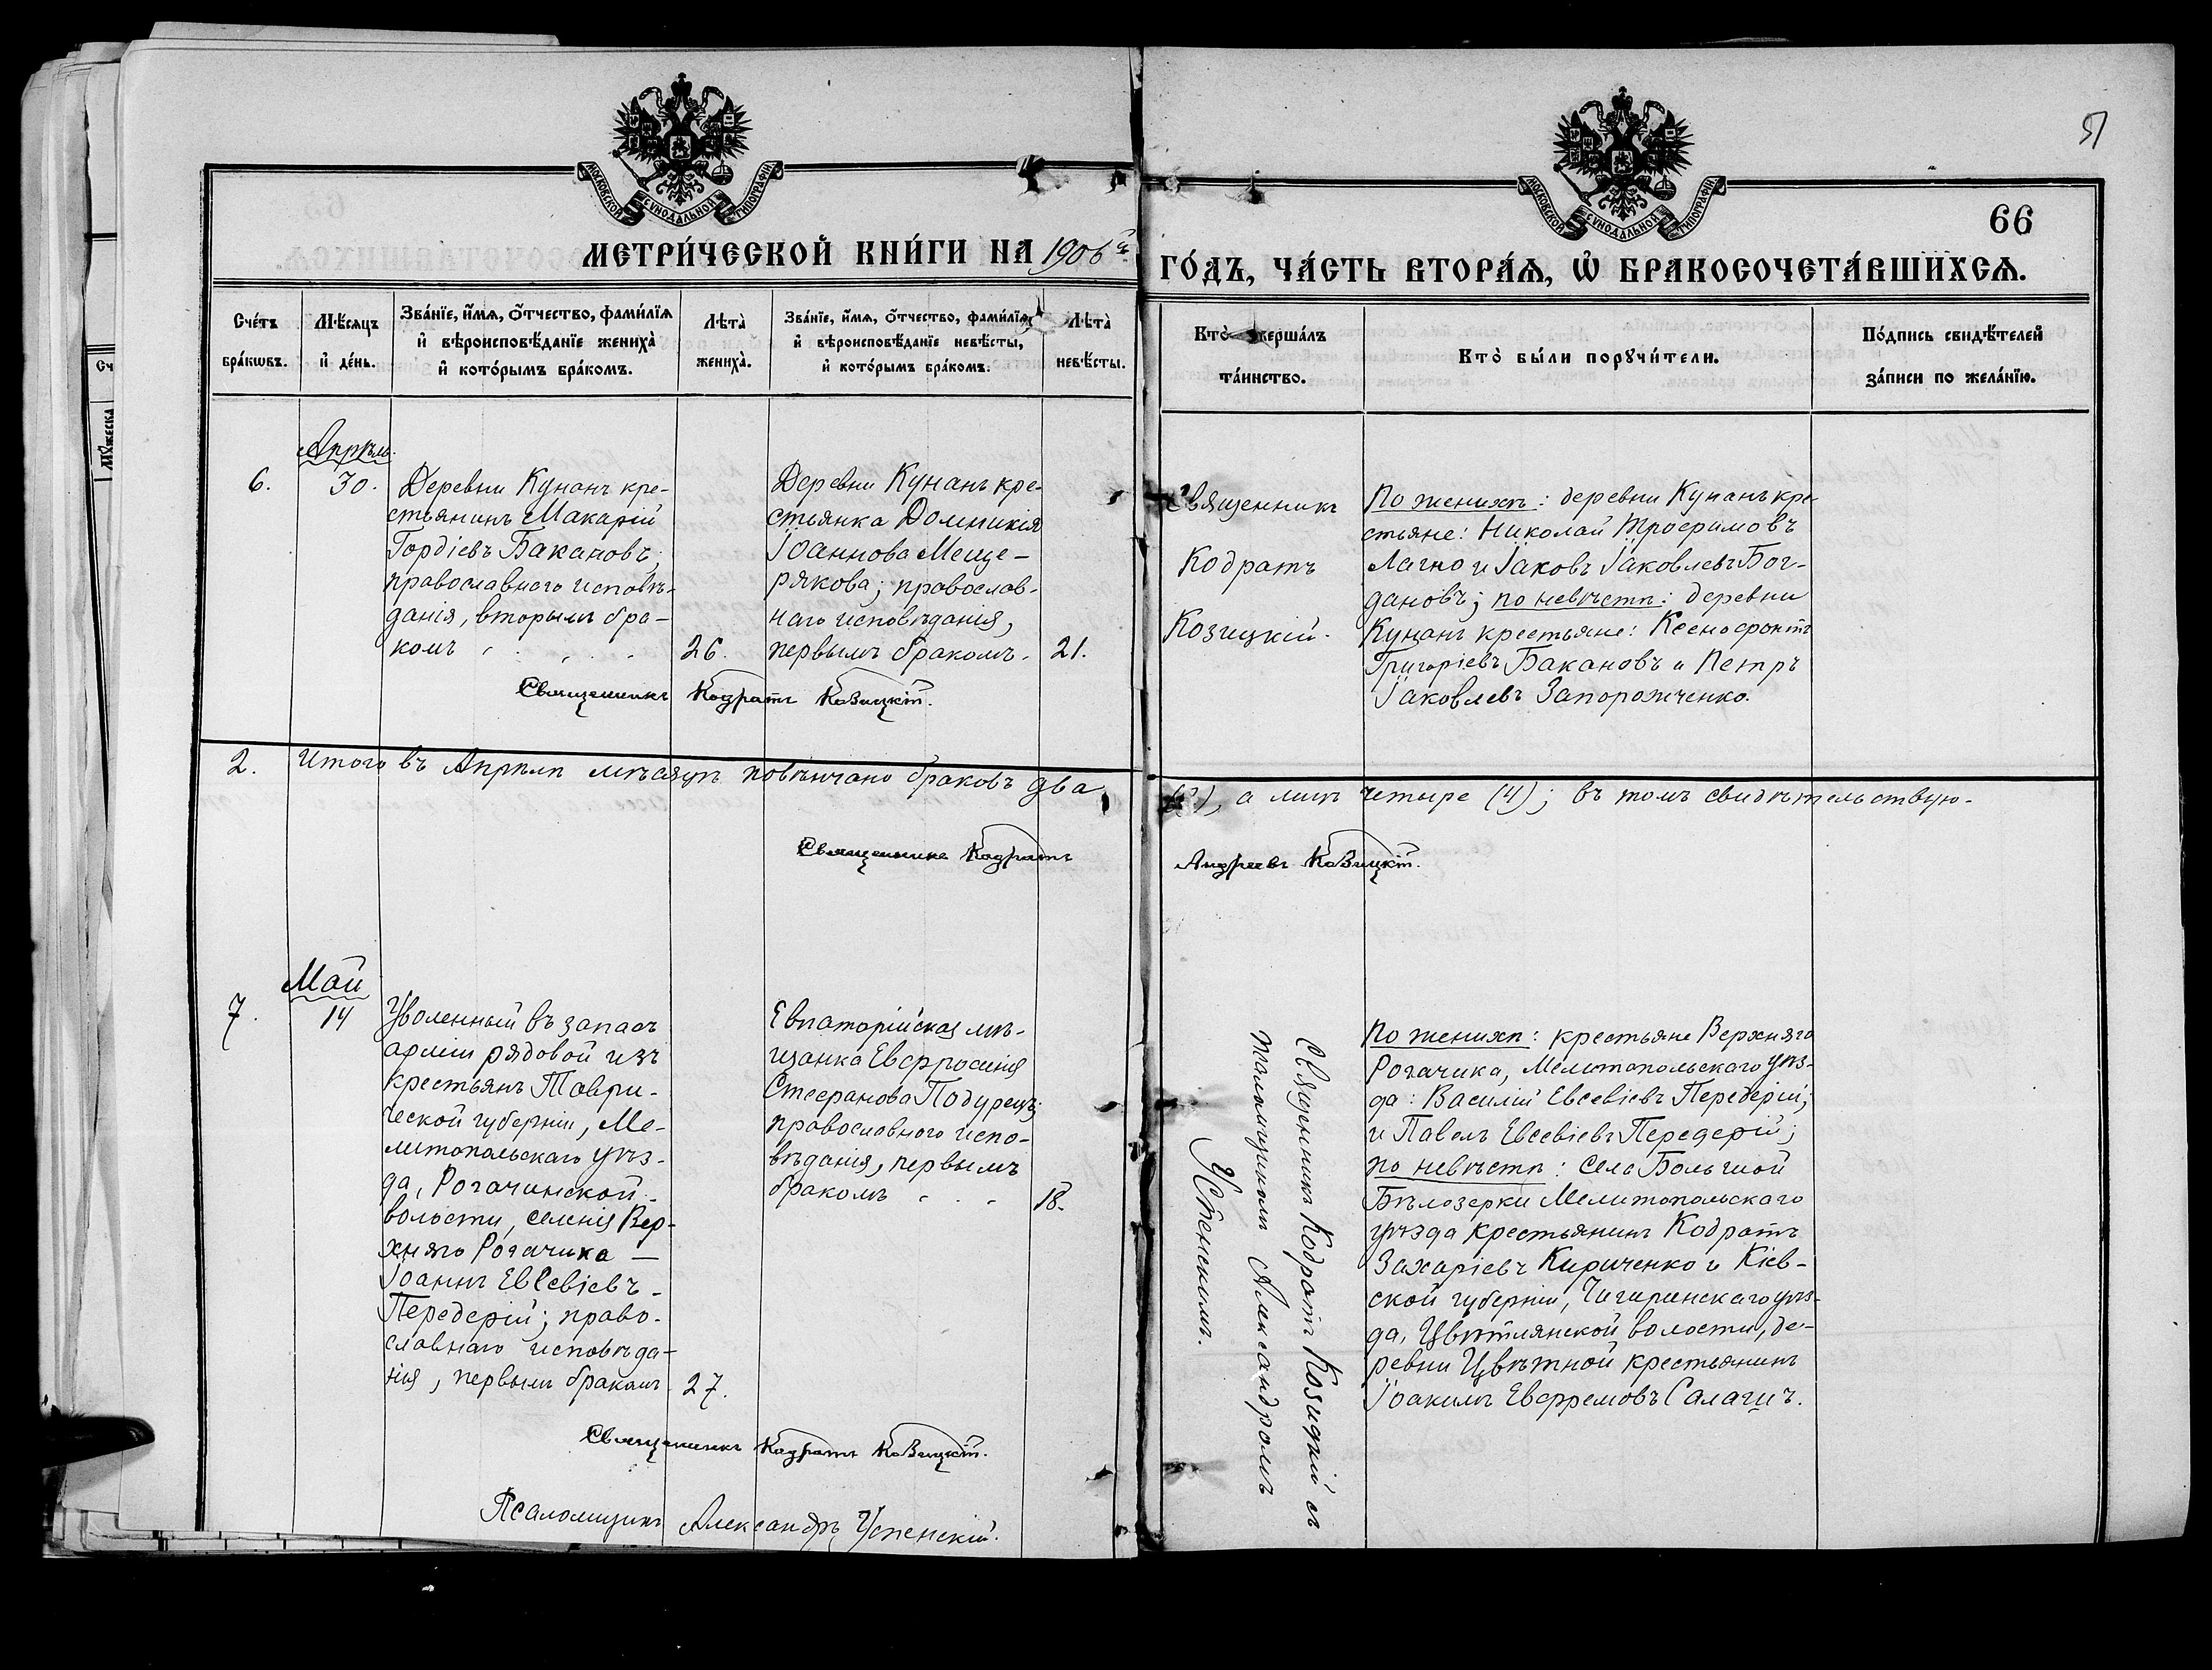 МОСКОВСКОЙ СѴНОДАЛЬНОЙ ТИПОГРАФІИ
МОСКОВСКОЙ СѴНОДАЛЬНОЙ ТИПОГРАФІИ
51
66
МЕТРИ́ЧЕСКОЙ КНИ́ГИ НА 1906й
ГО́ДЪ, ЧА́СТЬ ВТОРА́Я, Ѡ БРАКОСОЧЕТА́ВШИХСЯ.
Сче́тъ
бра́кѡвъ.
Мѣ́сяцъ
и҆ де́нь.
Зва́нїе, и҆́мя, ѻ҆́тчество, фами́лїя
и҆ вѣроисповѣ́данїе жениха̀
и҆ кото́рымъ бра́комъ.
Лѣта̀
жениха̀.
Зва́нїе, и҆́мя, ѻ҆́тчество, фами́лїя
и҆ вѣроисповѣ́данїе невѣ́сты,
и҆ кото́рымъ бра́комъ.
Лѣта̀
невѣ́сты.
Кто̀ соверша́лъ
та́инство.
Кто̀ бы́ли порꙋчи́тели.
По́дпись свидѣ́телей
за́писи по жела́нїю.
Сч
Мꙋжеска
Апрѣль.
6.
30.
Деревни Кунанъ кре-
стьянинъ Макарій
Гордіевъ Бакановъ;
православнаго исповѣ-
данія, вторымъ бра-
комъ
26.
Деревни Кунанъ кре-
стьянка Домникія
Іоаннова Меще-
рякова; православ-
наго исповѣданія,
первымъ бракомъ.
21.
Священникъ Кодратъ Козицкій.
Священникъ
Кодратъ
Козицкій.
По женихѣ: деревни Кунанъ кре-
стьяне: Николай Трофимовъ
Лагно и Іаковъ Іаковлевъ Бог-
дановъ; по невѣстѣ: деревни
Кунанъ крестьяне: Ксенофонтъ
Григоріевъ Бакановъ и Петръ
Іаковлевъ Запорожченко.
2. Итого въ Апрѣлѣ мѣсяцѣ повѣнчано браковъ два
(2), а лицъ четыре (4); въ томъ свидѣтельствую.
Священникъ Кодратъ
Андреевъ Козицкій.
Май
7.
14
Уволенный въ запасъ
арміи рядовой изъ
крестьянъ Таври-
ческой губерніи, Ме-
литопольскаго уѣз-
да, Рогачинской
волости, селенія Вер-
хняго Рогачика —
Іоаннъ Евсевіевъ
Передерій; право-
славнаго исповѣда-
нія, первымъ бракомъ
27.
Евпаторійская мѣ-
щанка Евфросинія
Стефанова Подурецъ;
православнаго испо-
вѣданія, первымъ
бракомъ
18.
Священникъ Кодратъ Козицкій.
Псаломщикъ Александръ Успенскій.
Священникъ Кодратъ Козицкій съ
псаломщикомъ Александромъ
Успенскимъ.
По женихѣ: крестьяне Верхняго
Рогачика, Мелитопольскаго уѣз-
да: Василій Евсевіевъ Передерій;
и Павелъ Евсевіевъ Передерій;
по невѣстѣ: села Большой
Бѣлозерки Мелитопольскаго
уѣзда крестьянинъ Кодратъ
Захаріевъ Кириченко и Кіев-
ской губерніи, Чигиринскаго уѣз-
да, Цвѣтлянской волости, де-
ревни Цвѣтной крестьянинъ
Іоакимъ Евфремовъ Салагинъ.